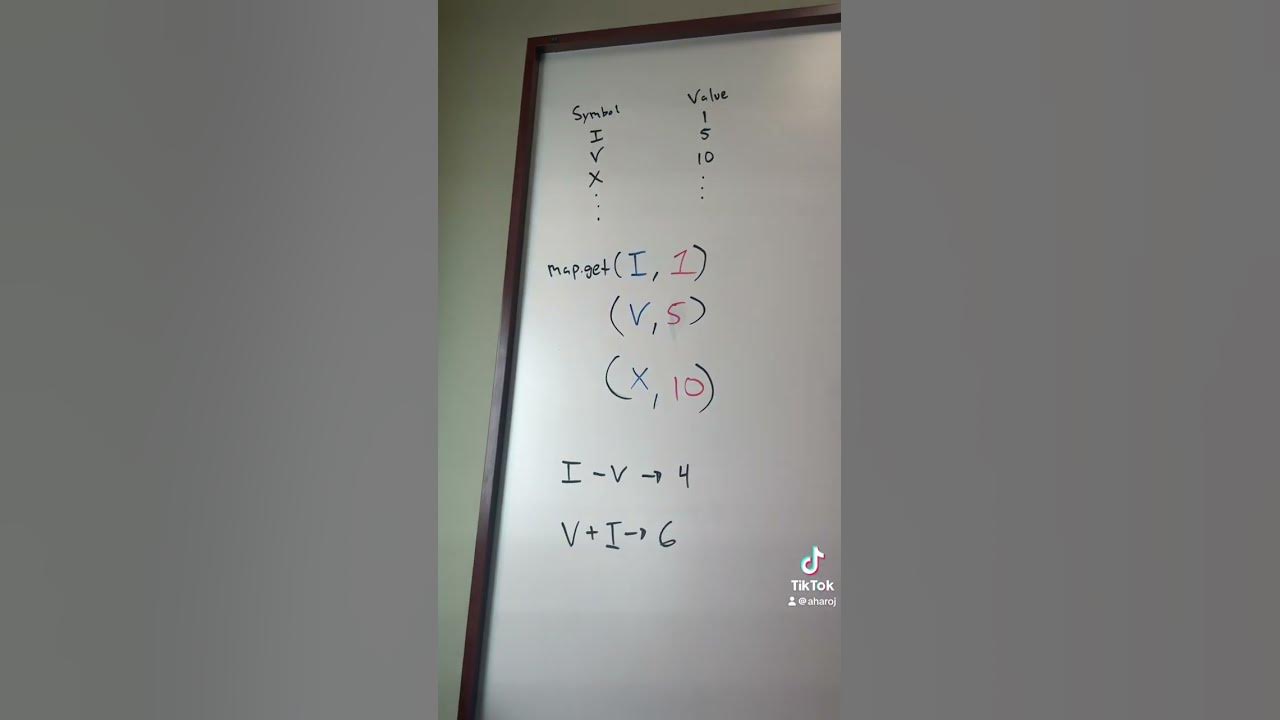 Symbol Value
I 1
V 5
X 10
map.get(I, 1)
(V, 5)
(X, 10)
I - V → 4
V + I → 6
TikTok
@aharoj